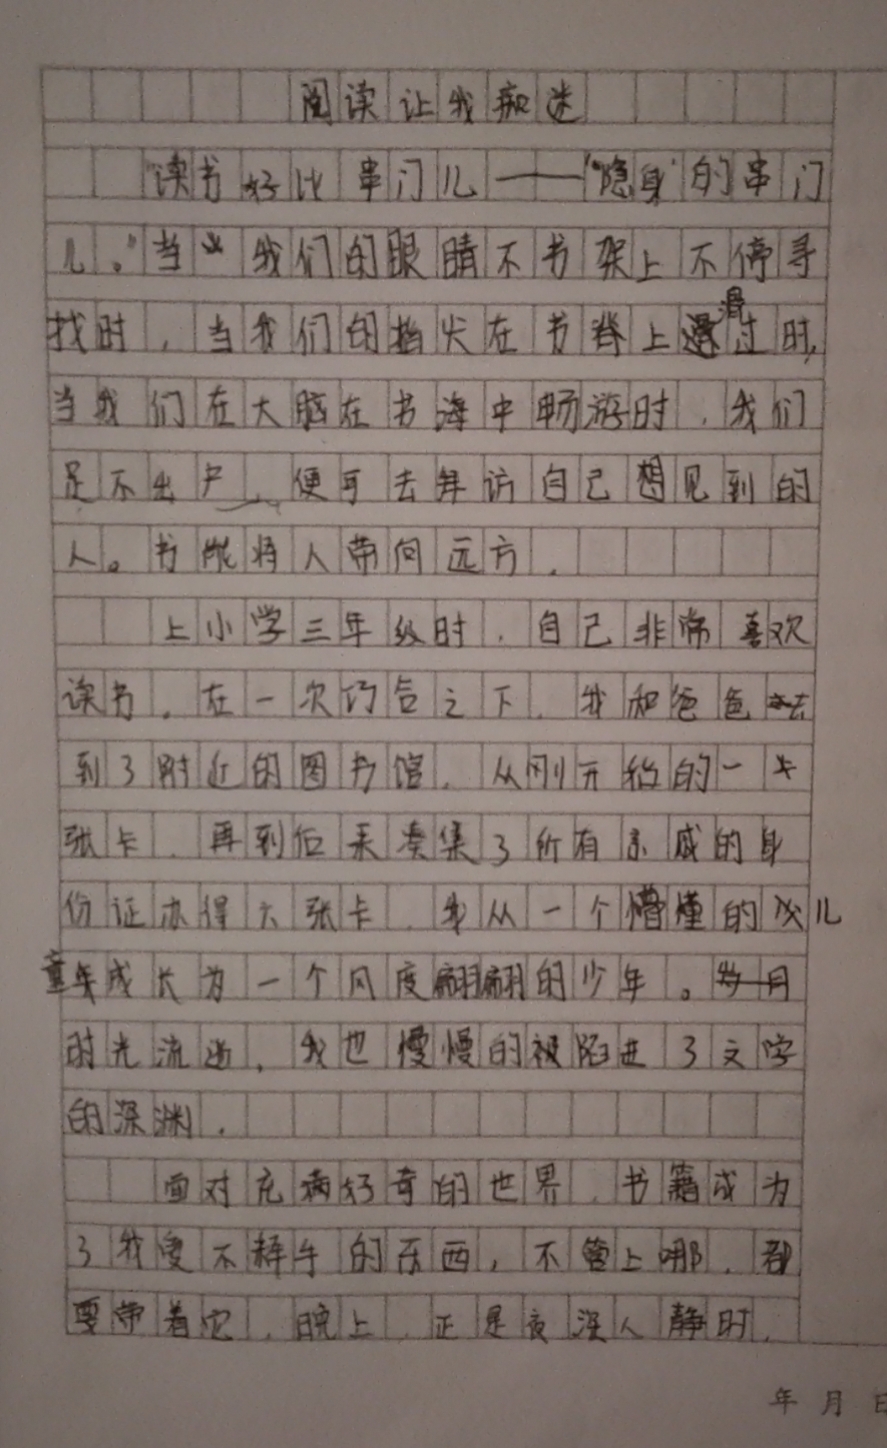 阅读让我痴迷
“读书好比串门儿——“隐身”的串门
儿。”当我们的眼睛不书架上不停寻
找时，当我们的指尖在书脊上滑过时，
当我们在大脑在书海中畅游时，我们
足不出户，便可去拜访自己想见到的
人。书能将人带向远方。
上小学三年级时，自己非常喜欢
读书。在一次巧合之下，我和爸爸去
到了附近的图书馆。从刚开始的一
张卡，再到后来凑集了所有亲戚的身
份证办得六张卡。我从一个懵懂的儿
童成长为一个风度翩翩的少年。
时光流逝，我也慢慢的被陷进了文字
的深渊。
面对充满好奇的世界，书籍成为
了我爱不释手的东西，不管上哪，都
要带着它。晚上，正是夜深人静时，
年 月 日